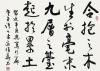 合抱之木
生於毫末
九層之臺
起於累土